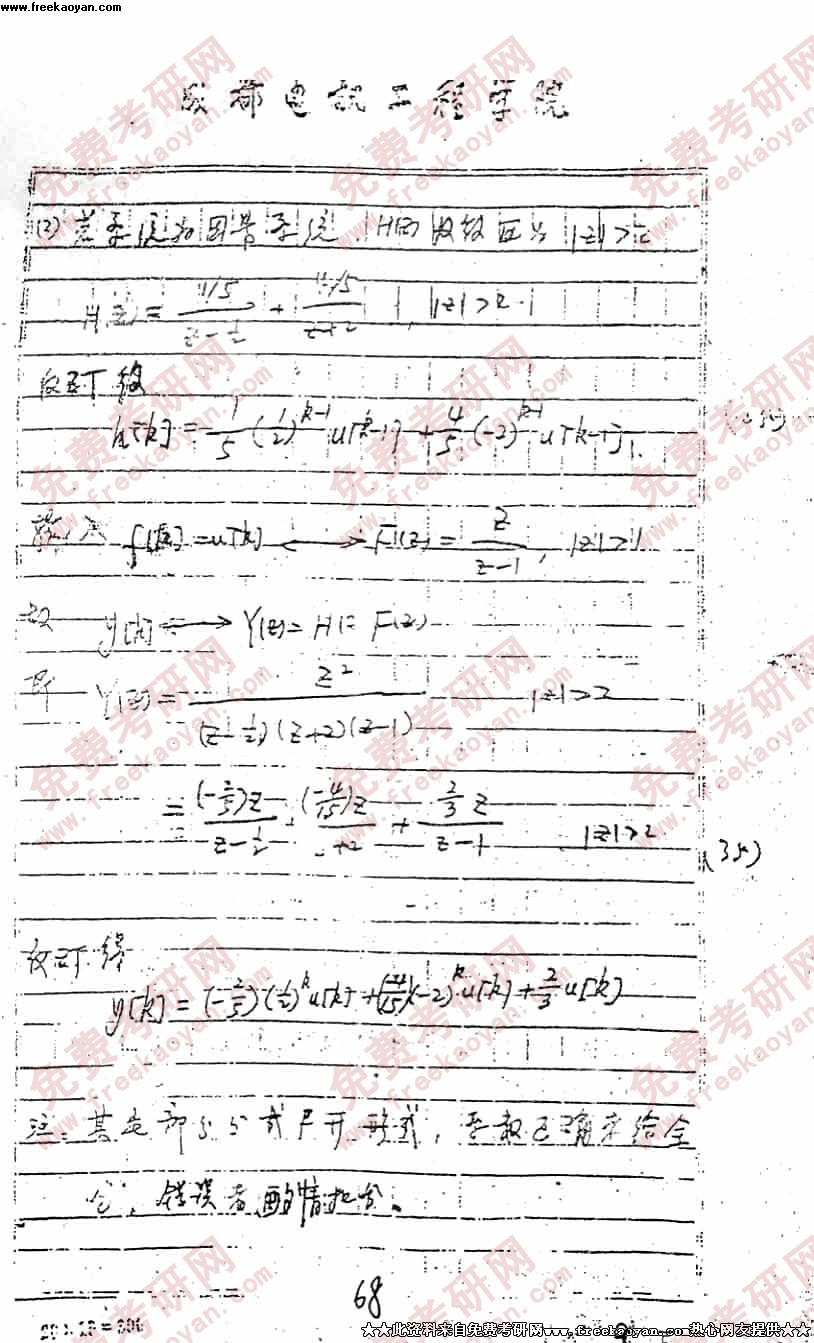 www.freekaoyan.com
成都电讯工程学院
(2) 若系统为因果系统, H(z)收敛区为 |z|>2
H(z) = (1/5)/(z-1/2) + (4/5)/(z+2), |z|>2
反变换
h[k] = 1/5 (1/2)^{k-1} u[k-1] + 4/5 (-2)^{k-1} u[k-1].
输入 f[k] = u[k] ⟷ F(z) = z/(z-1), |z|>1
故 y[k] ⟷ Y(z) = H(z) F(z)
即 Y(z) = z²/((z-1/2)(z+2)(z-1)) |z|>2
= (-2/5)z/(z-1/2) + (-4/15)z/(z+2) + (2/3)z/(z-1) |z|>2
(3分)
反变换
y[k] = (-2/5)(1/2)^k u[k] + (-4/15)(-2)^k u[k] + 2/3 u[k]
注: 其它部分分式展开形式, 系数正确亦给全
分, 错误者酌情扣分。
68
★★此资料来自免费考研网www.freekaoyan.com热心网友提供★★